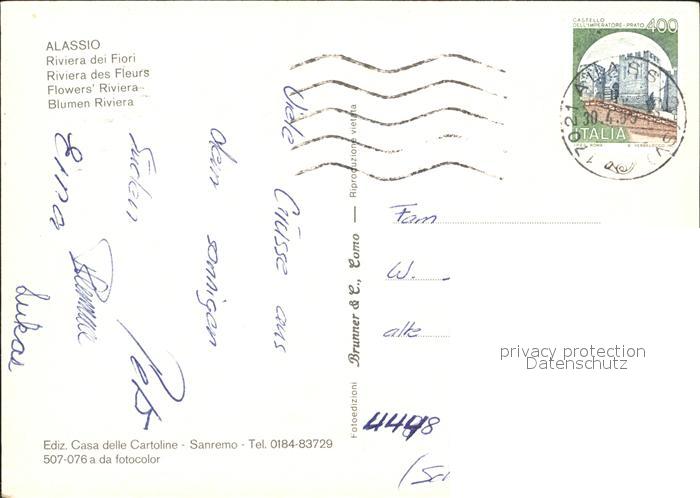 ALASSIO
Riviera dei Fiori
Riviera des Fleurs
Flowers' Riviera
Blumen Riviera
Viele
Grüsse aus
dem sonnigen
Süden
Erna
Lukas
Ediz. Casa delle Cartoline - Sanremo - Tel. 0184-83729
507-076 a da fotocolor
Fotoedizioni Brunner & C., Como — Riproduzione vietata
CASTELLO
DELL'IMPERATORE - PRATO 400
ITALIA
Fam
W.
alte
privacy protection
Datenschutz